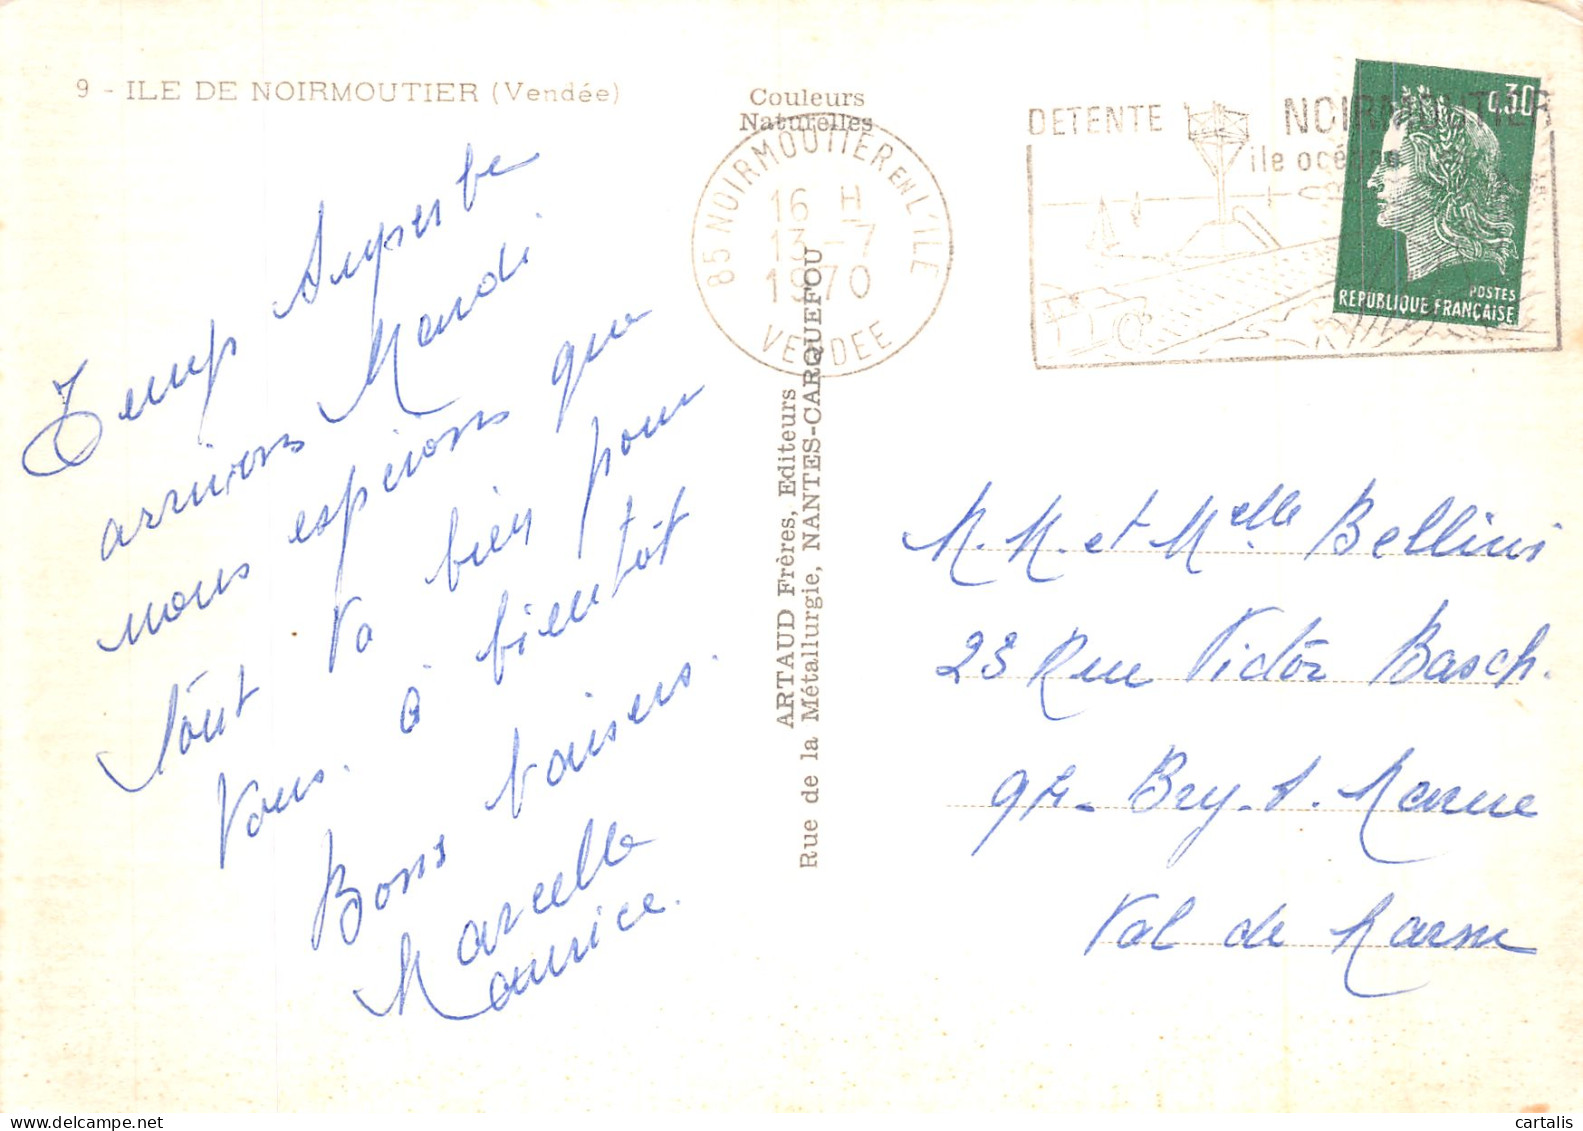 9 - ILE DE NOIRMOUTIER (Vendée)
Temp superbe
arrivons Mardi
nous esperons que
tout va bien pour
vous. à bientôt
Bons baisers.
Marcelle
Maurice.
Couleurs
Naturelles
ARTAUD Frères, Editeurs
Rue de la Métallurgie, NANTES-CARQUEFOU
85 NOIRMOUTIER EN L'ILE
16 H
13 - 7
1970
VENDEE
DETENTE NOIRMOUTIER
ile océane
0.30
POSTES
REPUBLIQUE FRANÇAISE
M. M. et Melle Bellini
23 Rue Victor Basch.
94 - Bry. s. Marne
Val de Marne
cartalis